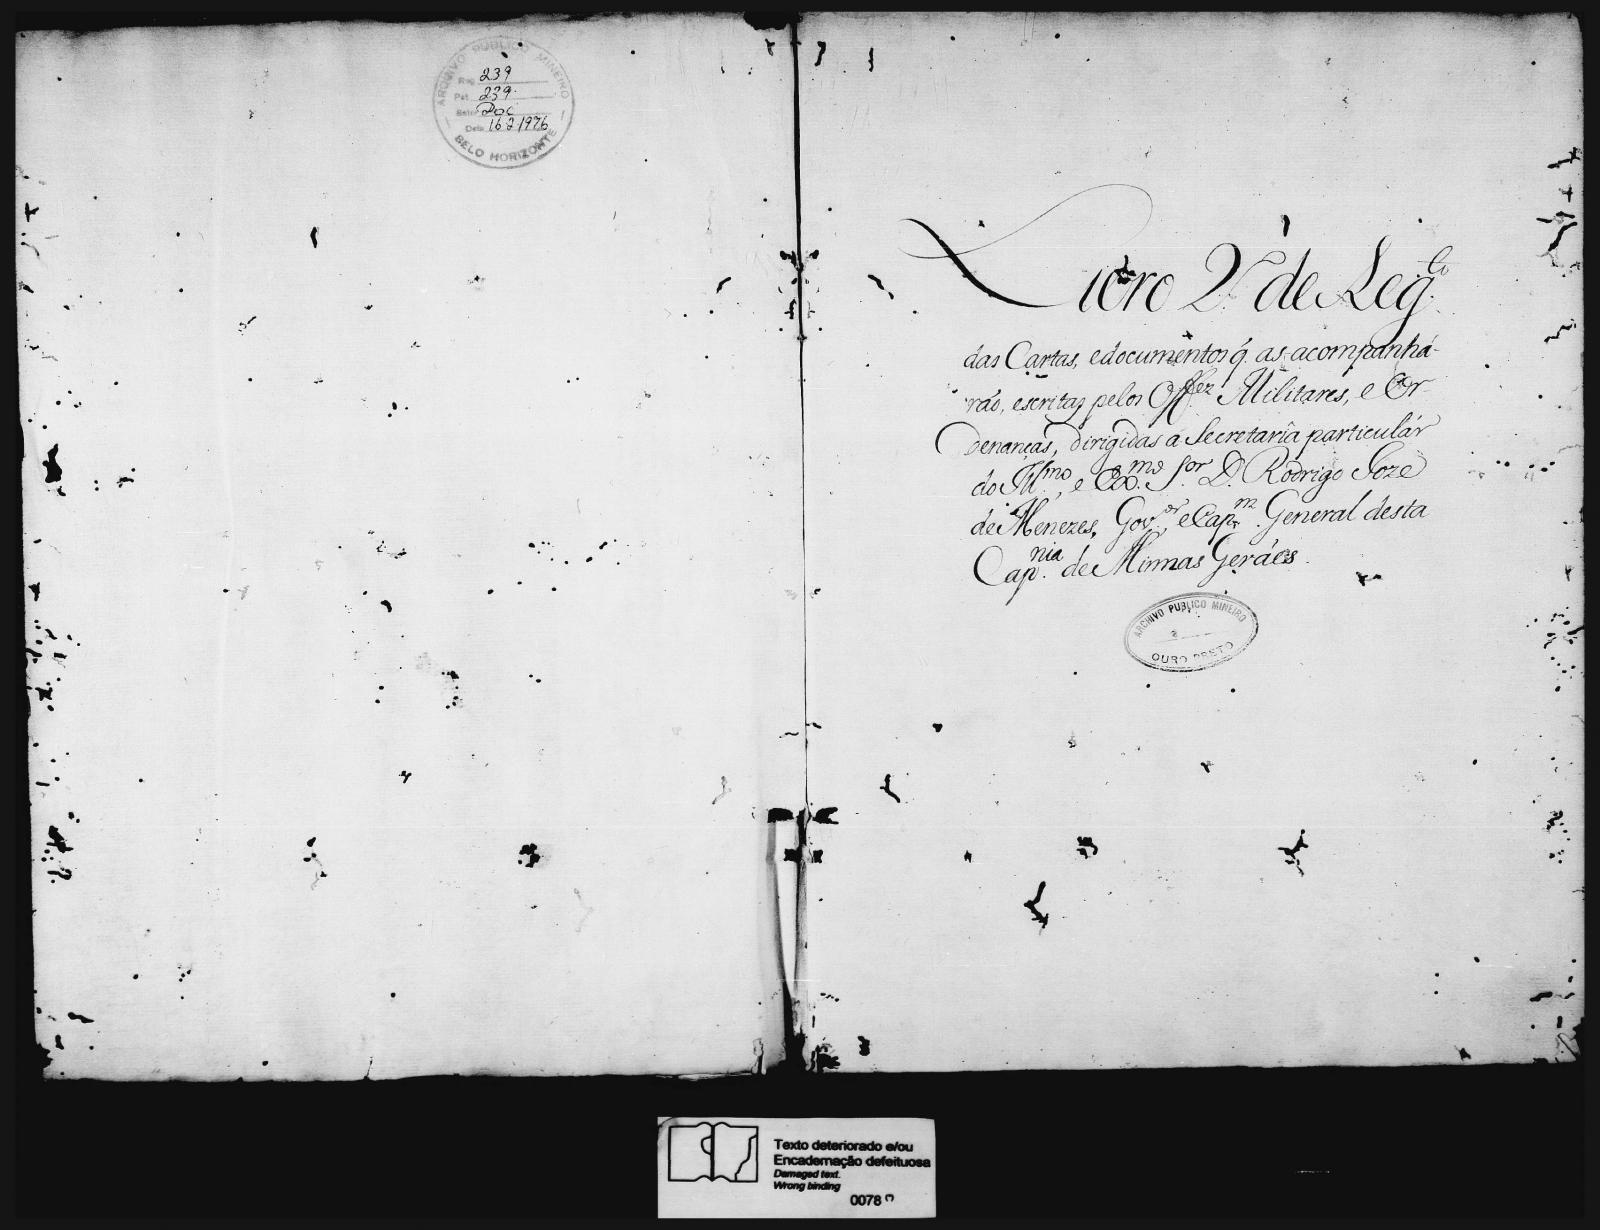 ARCHIVO PUBLICO MINEIRO
Reg. 239
Pat. 239
Doc
Data 16 2 1976
BELO HORIZONTE
Livro 2º de Reg.to
das Cartas, e documentos q̃ as acompanhá-
rão, escritas pelos Offez Militares, e Or
denanças, dirigidas a Secretaria particulár
do Ill.mo, e Ex.mo S.or D. Rodrigo Joze
de Menezes, Gov.or, e Cap.m General desta
Cap.nia de Minnas Geráes.
ARCHIVO PUBLICO MINEIRO
OURO PRETO
Texto deteriorado e/ou
Encadernação defeituosa
Damaged text.
Wrong binding
0078